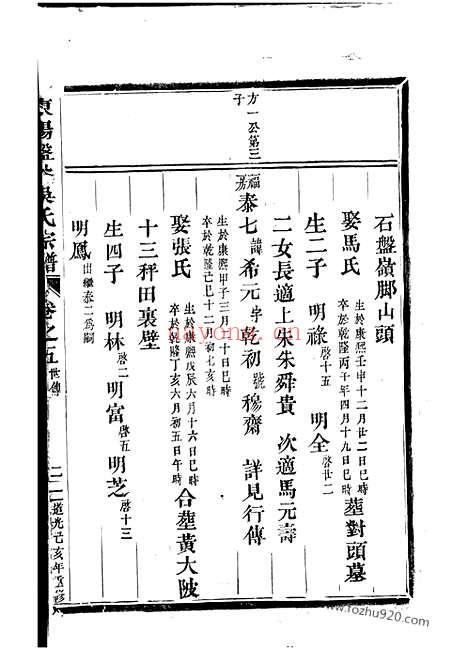 石盤嶺脚山頭
娶馬氏 生於康熙壬申十二月廿二日巳時 卒於乾隆丙子年四月十九日巳時 塟對頭墓
生二子 明祿 啓十五 明全 啓廿二
二女長適上朱朱舜貴 次適馬元壽
方一公第三子
福嘉
泰七 諱希元 字乾初 號穆齋 詳見行傳
生於康熙甲子三月二十日巳時
卒於乾隆己巳十二月初七亥時
娶張氏 生於康熙戊辰六月十六日巳時 卒於乾隆丁亥六月初五日午時 合塟黃大陂
十三秤田裏壁
生四子 明林 啓二 明富 啓五 明芝 啓十三
明鳳 出繼泰二爲嗣
東陽盤 吳氏宗譜 卷之五 世傳 道光己亥年重修
dayong.cn
www.fozhu920.com